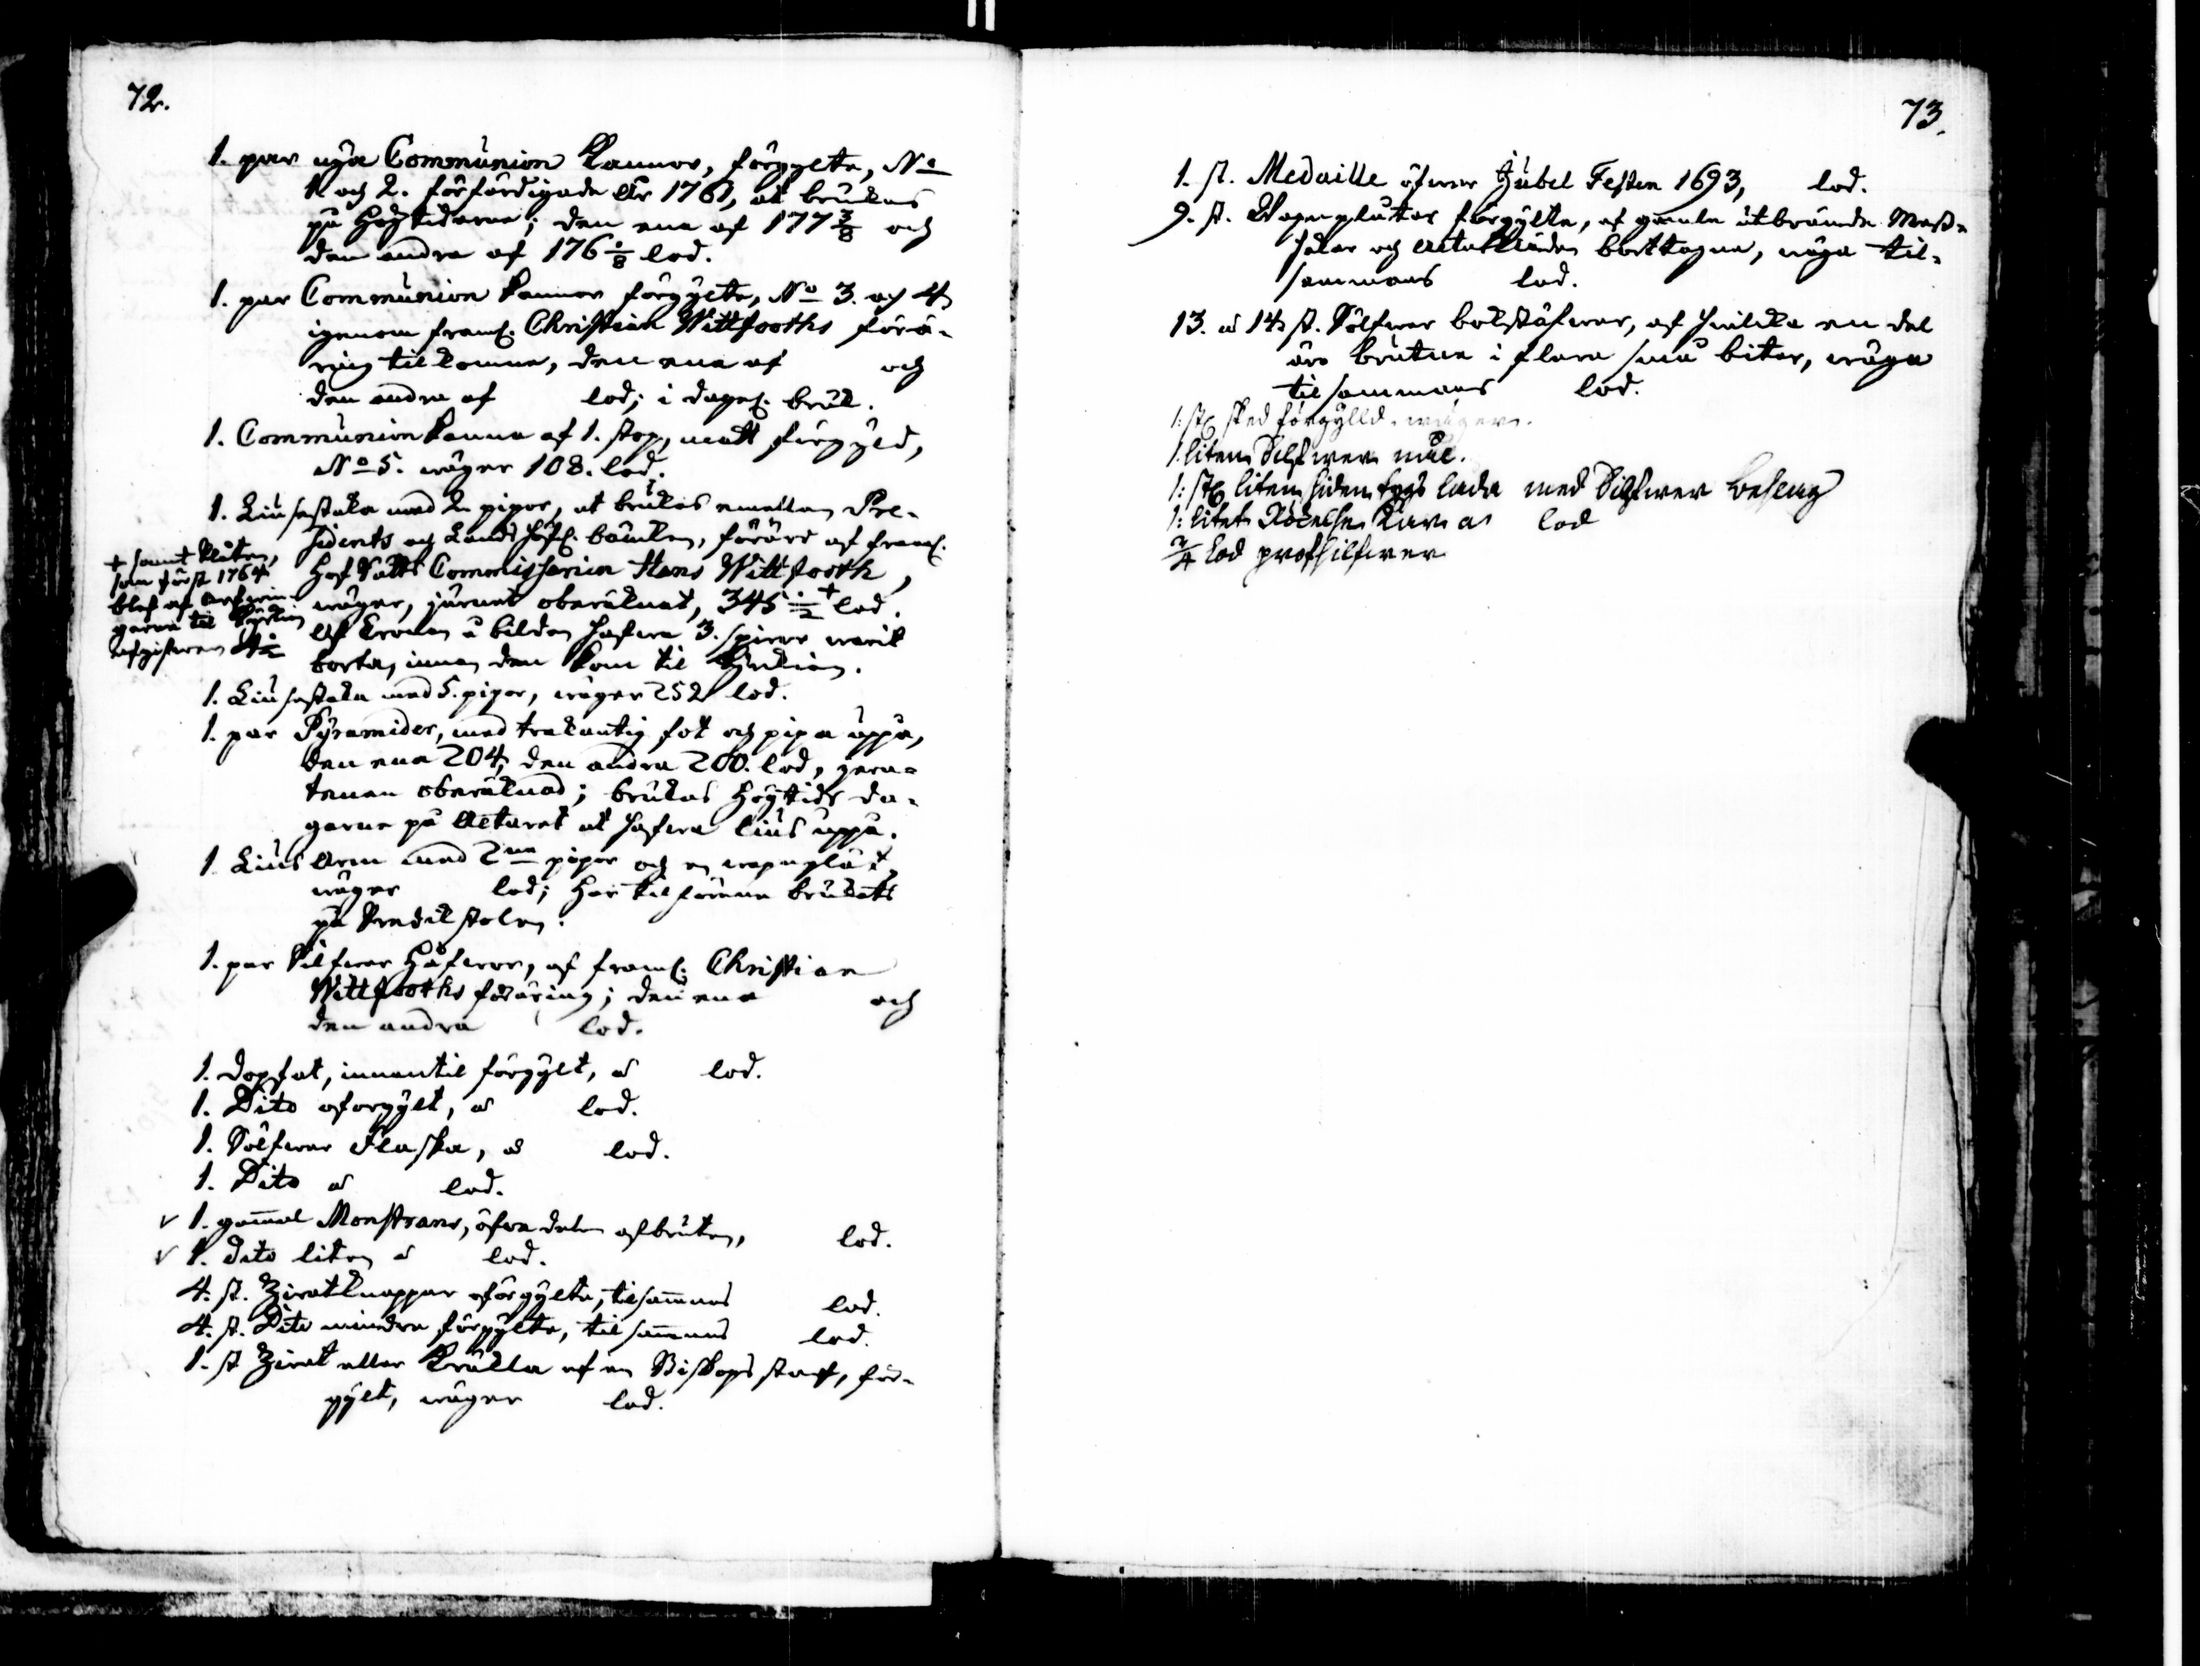 72.
1. par nya Communion Kannor, förgylte, No
1. och 2. förfärdigade År 1761, at brukas
på Högtiderne; den ena af 177 3/8 och
den andra af 176 lod.
1. par Communion Kannor förgylte, No 3. och 4
igenom framl. Christian Wittfooths förä-
ring tilkomne, den ena af och
den andra af lod; i dagel. bruk.
1. Communion Kanna af 1. stop, matt förgyld,
No 5. wäger 108. lod.
1. Liusastaka med 2 pipor, at brukas emellan Pre-
sidents och Landshöfd. bänken, förärd af framl.
Hof Rätts Commissarien Hans Wittfooth,
wäger, järnet oberäknat, 345 1/2 + lod.
Af Cronan å bilden hafwa 3. spiror warit
borta, innan den kom til Kyrkian.
+ samt Pläten,
som först 1764
blef af Arfwin-
garne til Kyrkian
afgifwen
1. Liusastaka med 5. pipor, wäger 252 lod.
1. par Pyramider, med trekantig fot och pipa uppå,
den ena 204, den andra 200. lod,
oberäknad; brukas Högtids da-
garne på Altaret at hafwa lius uppå.
1. Lius Arm med 2ne pipor och en wapnplåt,
wäger lod; har tilförene brukats
på Predikstolen.
1. par Silfwer Håfwor, af framl. Christian
Wittfooths föräring; den ena och
den andra lod.
1. Dopfat, innantil förgylt, à lod.
1. Dito oforgylt, à lod.
1. Sölfwer Flaska, à lod.
1. Dito à lod.
v 1. gammal Monstrans, öfra delen afbruten, lod.
v 1. dito liten à lod.
4. st. Ziratknappar oförgylte, tilsammans lod.
4. st. Dito mindre förgylte, tilsammans lod.
1. st Zirat eller Krulla af en Biskops staf, för-
gylt, wäger lod.
73.
1. st. Medaille öfwer Jubel Festen 1693, lod.
9. st. Wapnplåtar förgylte, af gamla utbrända Mess-
hakar och Altarkläden borttagne, wäga til-
sammans lod.
13. à 14 st. Sölfwer bokstäfwer, af hwilka en del
äro brutne i flera små biter, wäga
tilsammans lod.
1: st sked förgylld. wäger.
1 liten Silfwer nål.
1: st liten sidentygs lada med Silfwer beslag
1: litet à lod
3/4 Lod profsilfwer